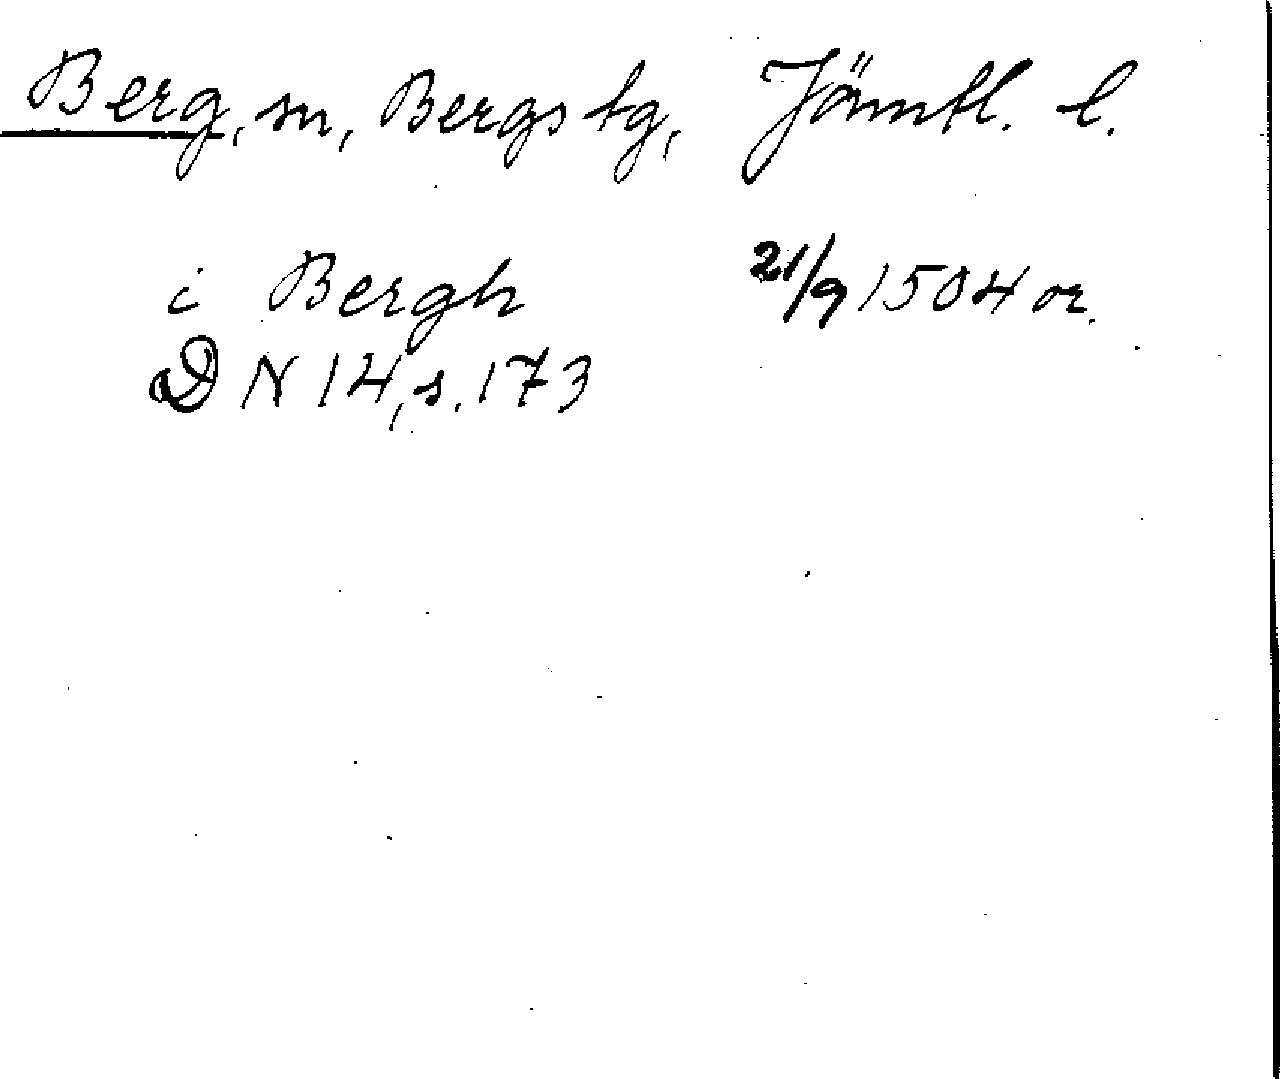 Berg, sn, Bergs tg, Jämtl. l.
i Bergh 21/9 1504 or.
DN 14, s. 173